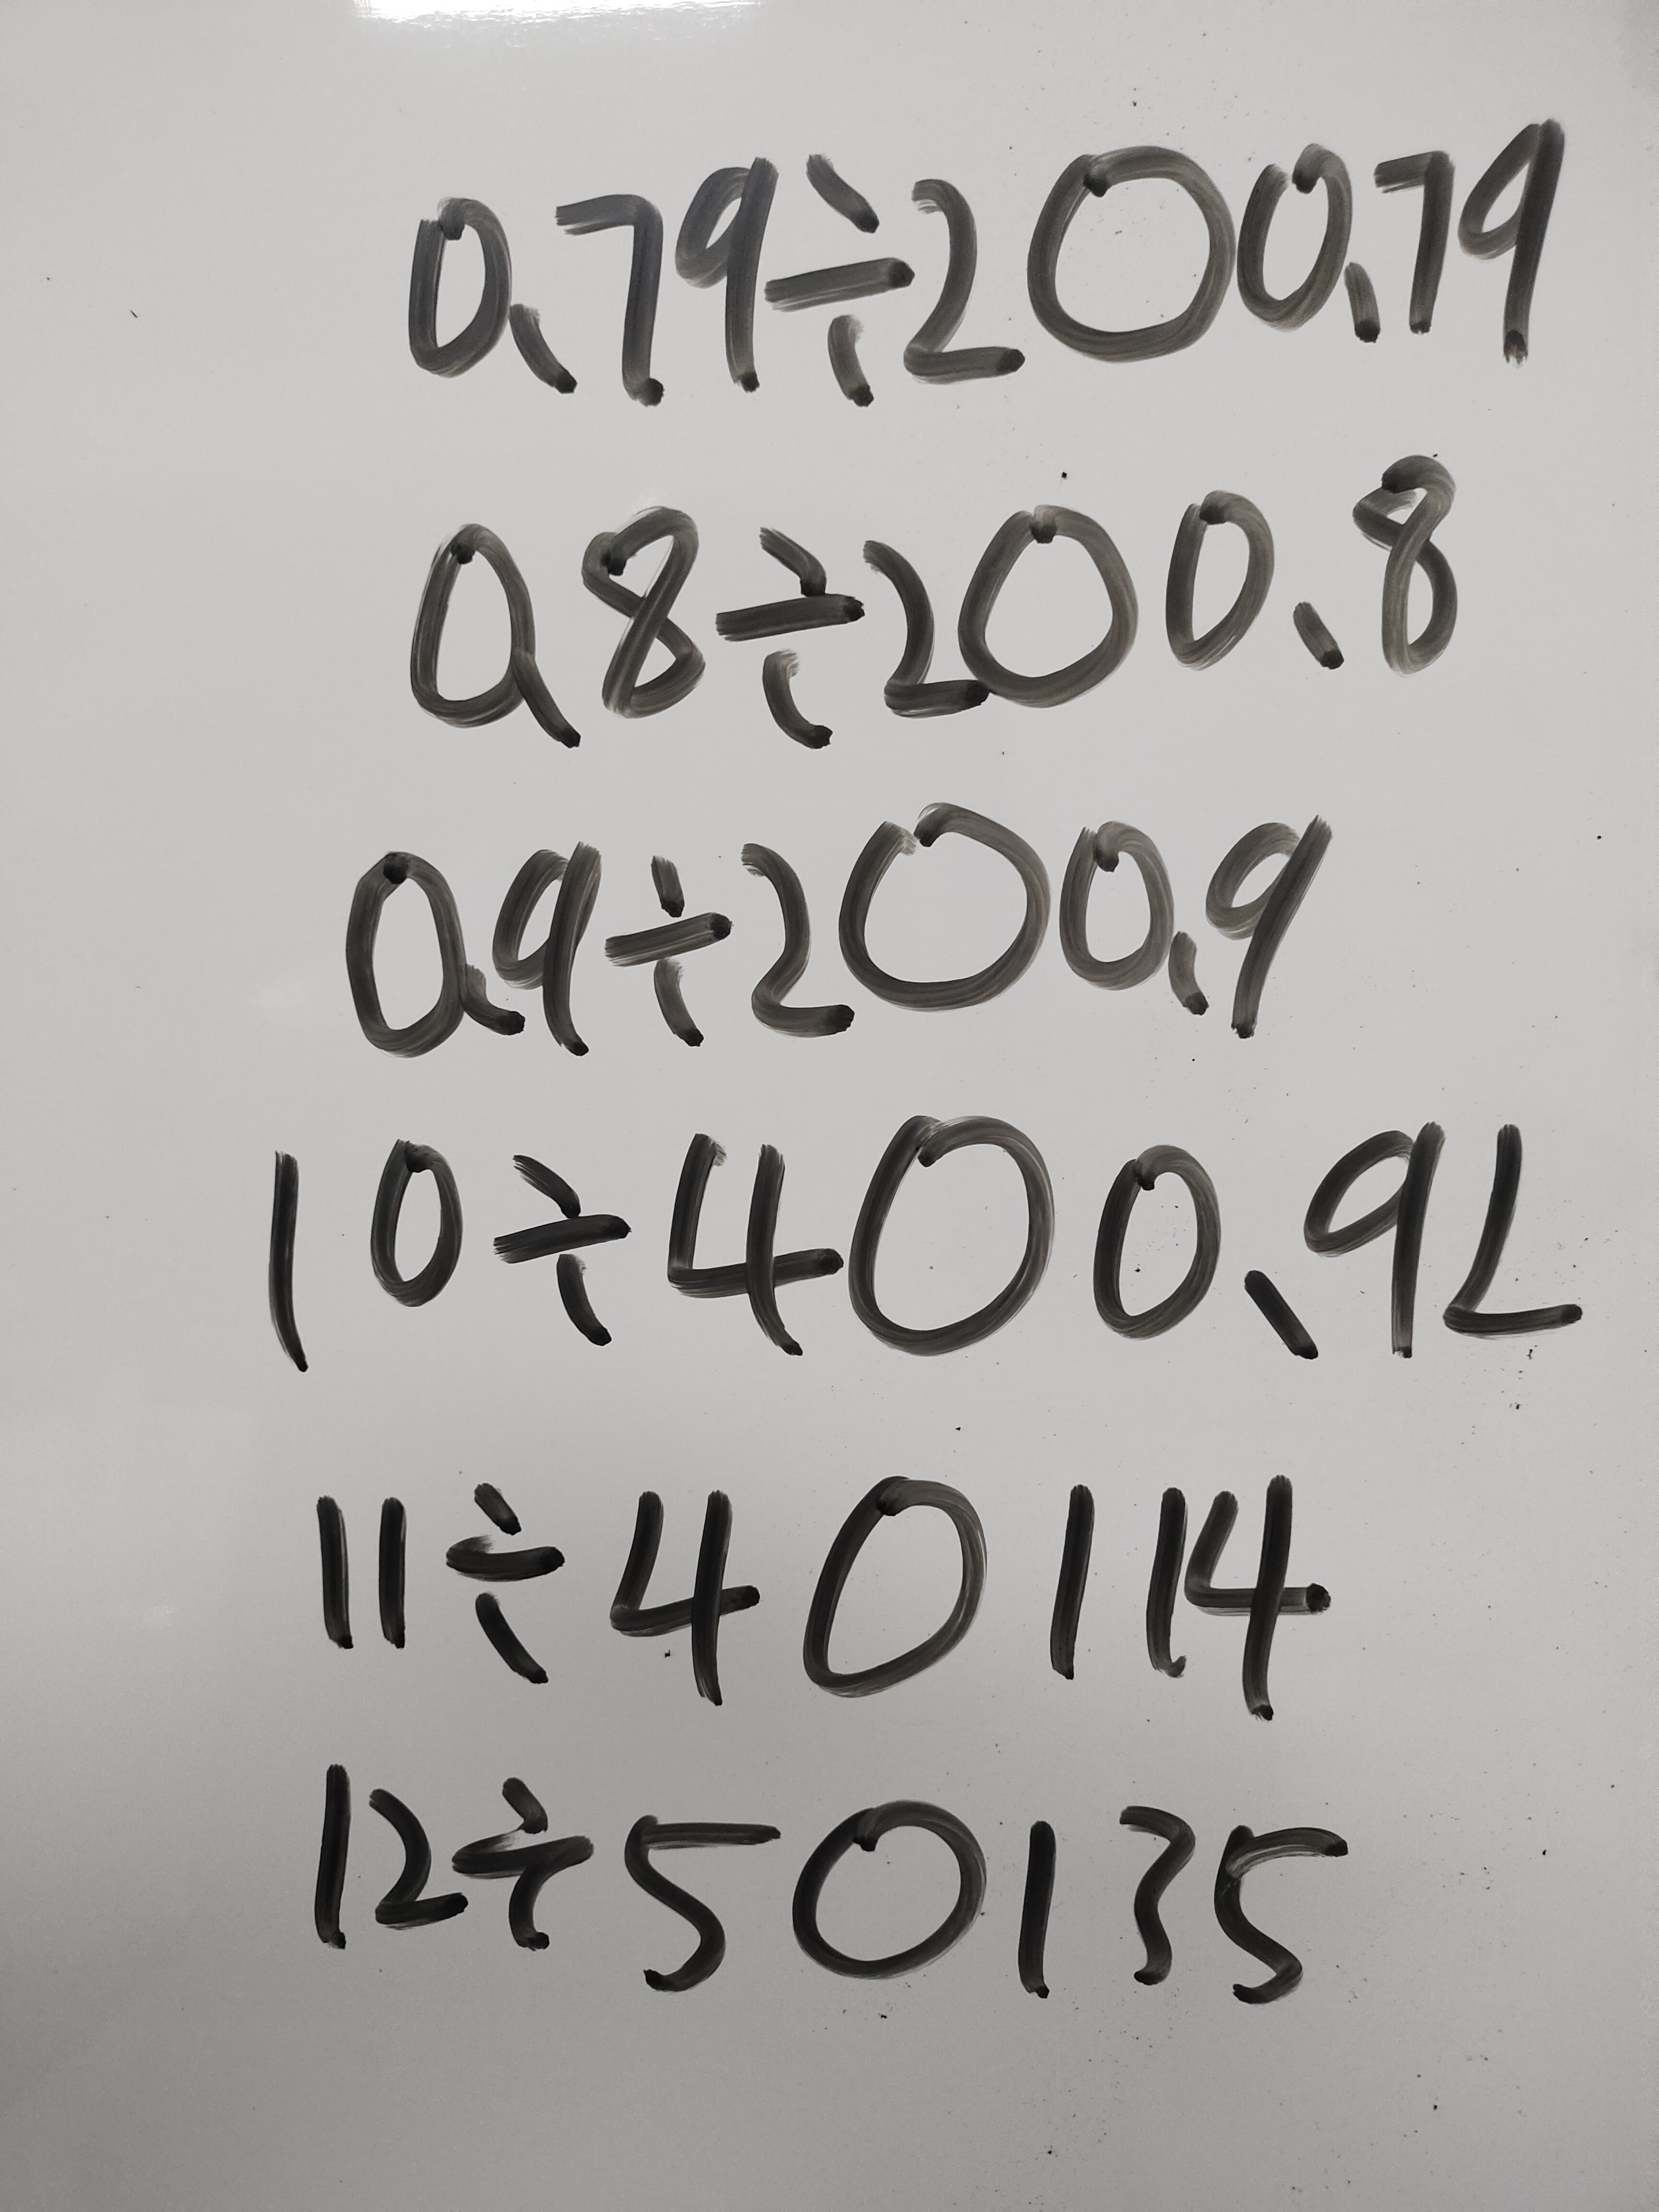 0.79÷2○0.79
0.8÷2○0.8
0.9÷2○0.9
10÷4○0.9L
11÷4○114
12÷5○135